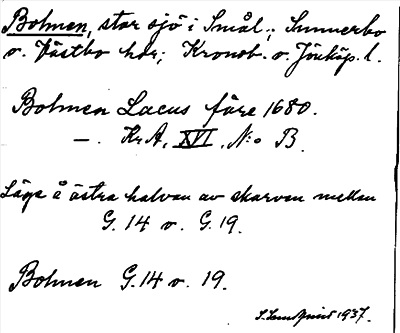 Bolmen, stor sjö i Smål.; Sunnerbo
o. Västbo hdr; Kronob. o. Jönköp. l.
Bolmen Lacus före 1680.
—. Kr.A. XVI. N:o B.
Läge å östra halvan av skarven mellan
G. 14 o. G. 19.
Bolmen G. 14 o. 19.
1937.